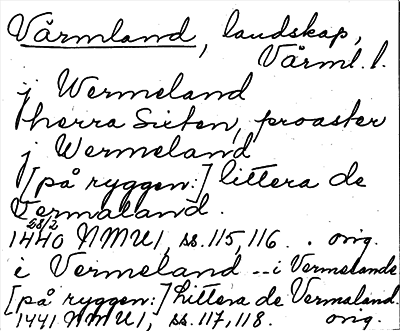 Värmland, landskap,
Värml. l.
j Wermeland
herra Sixten, proaster
j Wermeland
[på ryggen:] littera de
Vermaland.
28/2
1440 NMU1, ss. 115, 116. orig.
i Vermeland -- i Vermelande
[på ryggen:] Littera de Vermaland.
1441 NMU1, ss. 117, 118. orig.